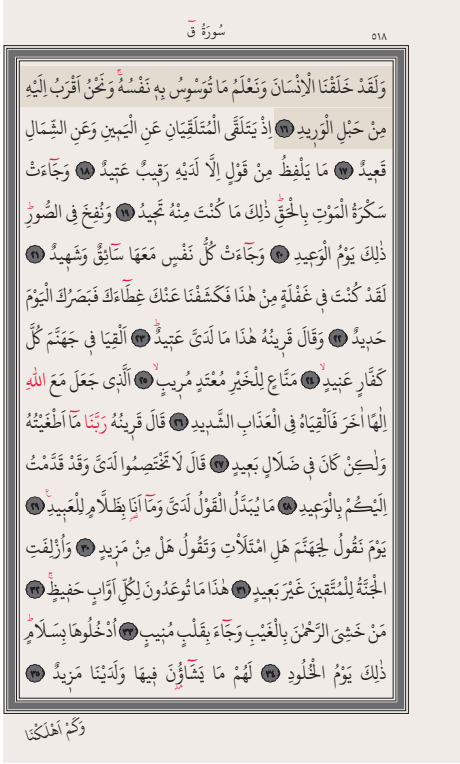 سُورَةُ قٓ
٥١٨
وَلَقَدْ خَلَقْنَا الْاِنْسَانَ وَنَعْلَمُ مَا تُوَسْوِسُ بِه۪ نَفْسُهُۚ وَنَحْنُ اَقْرَبُ اِلَيْهِ
مِنْ حَبْلِ الْوَر۪يدِ ١٦ اِذْ يَتَلَقَّى الْمُتَلَقِّيَانِ عَنِ الْيَم۪ينِ وَعَنِ الشِّمَالِ
قَع۪يدٌ ١٧ مَا يَلْفِظُ مِنْ قَوْلٍ اِلَّا لَدَيْهِ رَق۪يبٌ عَت۪يدٌ ١٨ وَجَٓاءَتْ
سَكْرَةُ الْمَوْتِ بِالْحَقِّۜ ذٰلِكَ مَا كُنْتَ مِنْهُ تَح۪يدُ ١٩ وَنُفِخَ فِي الصُّورِۜ
ذٰلِكَ يَوْمُ الْوَع۪يدِ ٢٠ وَجَٓاءَتْ كُلُّ نَفْسٍ مَعَهَا سَٓائِقٌ وَشَه۪يدٌ ٢١
لَقَدْ كُنْتَ ف۪ي غَفْلَةٍ مِنْ هٰذَا فَكَشَفْنَا عَنْكَ غِطَٓاءَكَ فَبَصَرُكَ الْيَوْمَ
حَد۪يدٌ ٢٢ وَقَالَ قَر۪ينُهُ هٰذَا مَا لَدَيَّ عَت۪يدٌۜ ٢٣ اَلْقِيَا ف۪ي جَهَنَّمَ كُلَّ
كَفَّارٍ عَن۪يدٍۙ ٢٤ مَنَّاعٍ لِلْخَيْرِ مُعْتَدٍ مُر۪يبٍۙ ٢٥ اَلَّذ۪ي جَعَلَ مَعَ اللّٰهِ
اِلٰهًا اٰخَرَ فَاَلْقِيَاهُ فِي الْعَذَابِ الشَّد۪يدِ ٢٦ قَالَ قَر۪ينُهُ رَبَّنَا مَٓا اَطْغَيْتُهُ
وَلٰكِنْ كَانَ ف۪ي ضَلَالٍ بَع۪يدٍ ٢٧ قَالَ لَا تَخْتَصِمُوا لَدَيَّ وَقَدْ قَدَّمْتُ
اِلَيْكُمْ بِالْوَع۪يدِ ٢٨ مَا يُبَدَّلُ الْقَوْلُ لَدَيَّ وَمَٓا اَنَا۬ بِظَلَّامٍ لِلْعَب۪يدِ۟ ٢٩
يَوْمَ نَقُولُ لِجَهَنَّمَ هَلِ امْتَلَأْتِ وَتَقُولُ هَلْ مِنْ مَز۪يدٍ ٣٠ وَاُزْلِفَتِ
الْجَنَّةُ لِلْمُتَّق۪ينَ غَيْرَ بَع۪يدٍ ٣١ هٰذَا مَا تُوعَدُونَ لِكُلِّ اَوَّابٍ حَف۪يظٍۚ ٣٢
مَنْ خَشِيَ الرَّحْمٰنَ بِالْغَيْبِ وَجَٓاءَ بِقَلْبٍ مُن۪يبٍۙ ٣٣ اُدْخُلُوهَا بِسَلَامٍۜ
ذٰلِكَ يَوْمُ الْخُلُودِ ٣٤ لَهُمْ مَا يَشَٓاؤُ۫نَ ف۪يهَا وَلَدَيْنَا مَز۪يدٌ ٣٥
وَكَمْ اَهْلَكْنَا